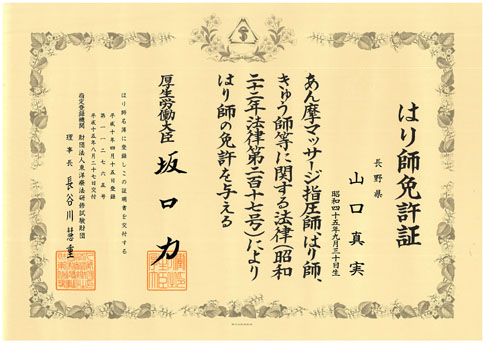 はり師免許証
長野県
山口真実
昭和四十五年九月三十日生
あん摩マッサージ指圧師、はり師、
きゅう師等に関する法律(昭和
二十二年法律第二百十七号)により
はり師の免許を与える
厚生労働大臣 坂口力
はり師名簿に登録しこの証明書を交付する
平成十年四月十五日登録
第一一二七六五号
平成十五年八月二十七日交付
指定登録機関 財団法人東洋療法研修試験財団
理事長 長谷川慧重